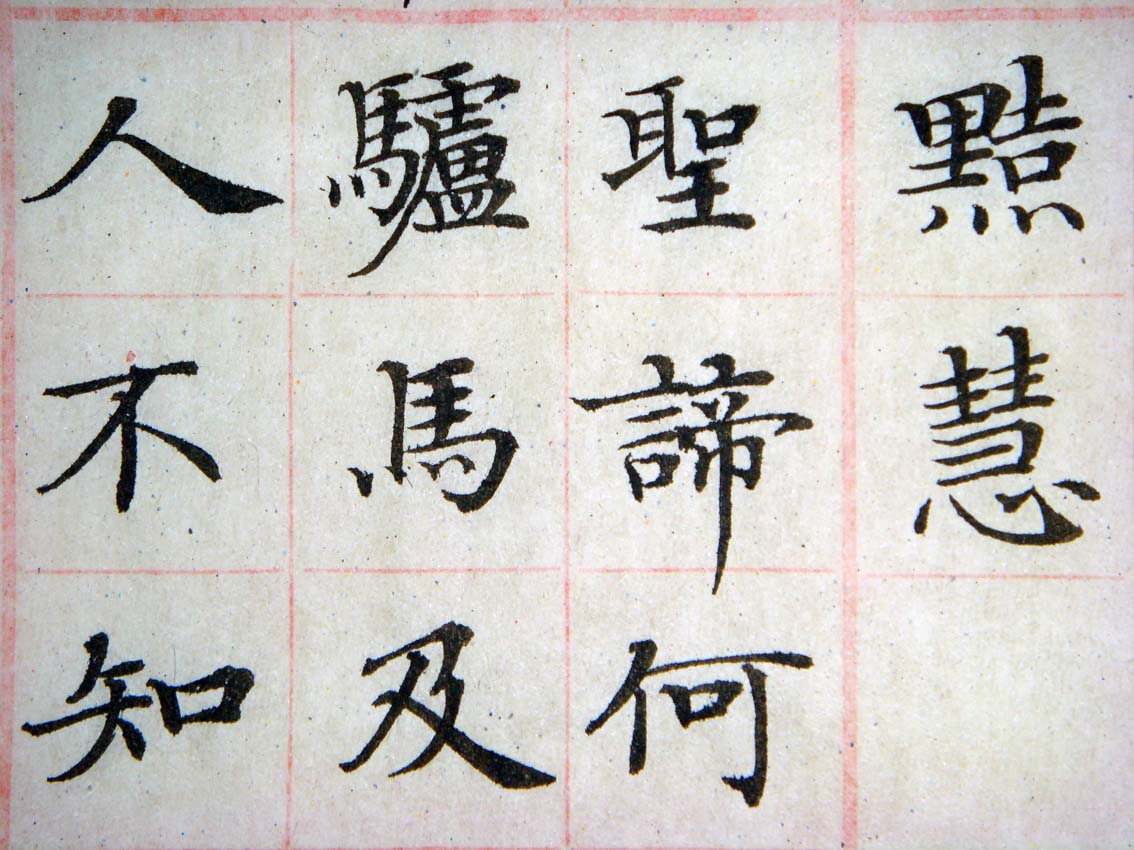 黠慧
聖諦何
驢馬及
人不知